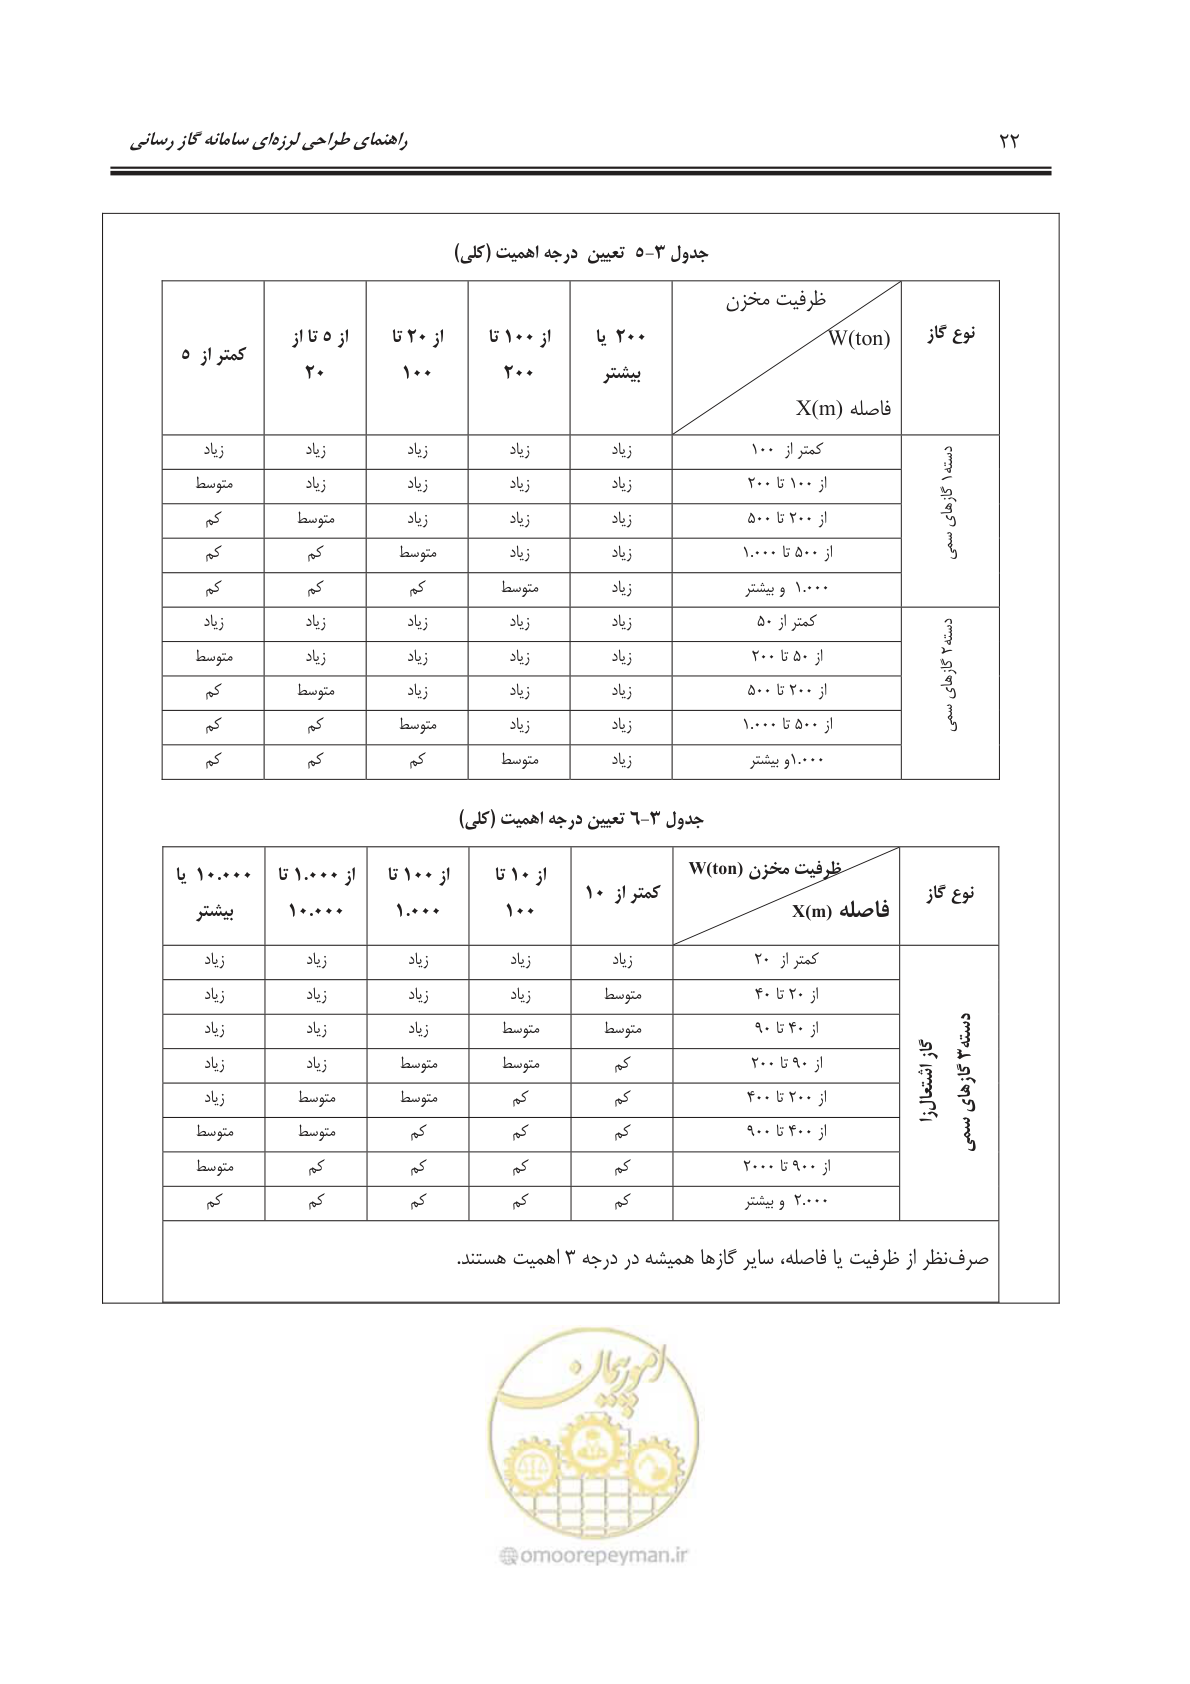 ۲۲ راهنمای طراحی لرزه‌ای سامانه گاز رسانی
جدول ۳-۵ تعیین درجه اهمیت (کلی)
نوع گاز | ظرفیت مخزن W(ton) فاصله X(m) | ۲۰۰ یا بیشتر | از ۱۰۰ تا ۲۰۰ | از ۲۰ تا ۱۰۰ | از ۵ تا از ۲۰ | کمتر از ۵
دسته۱ گازهای سمی | کمتر از ۱۰۰ | زیاد | زیاد | زیاد | زیاد | زیاد
از ۱۰۰ تا ۲۰۰ | زیاد | زیاد | زیاد | زیاد | متوسط
از ۲۰۰ تا ۵۰۰ | زیاد | زیاد | زیاد | متوسط | کم
از ۵۰۰ تا ۱.۰۰۰ | زیاد | زیاد | متوسط | کم | کم
۱.۰۰۰ و بیشتر | زیاد | متوسط | کم | کم | کم
دسته۲ گازهای سمی | کمتر از ۵۰ | زیاد | زیاد | زیاد | زیاد | زیاد
از ۵۰ تا ۲۰۰ | زیاد | زیاد | زیاد | زیاد | متوسط
از ۲۰۰ تا ۵۰۰ | زیاد | زیاد | زیاد | متوسط | کم
از ۵۰۰ تا ۱.۰۰۰ | زیاد | زیاد | متوسط | کم | کم
۱.۰۰۰و بیشتر | زیاد | متوسط | کم | کم | کم
جدول ۳-۶ تعیین درجه اهمیت (کلی)
نوع گاز | ظرفیت مخزن W(ton) فاصله X(m) | کمتر از ۱۰ | از ۱۰ تا ۱۰۰ | از ۱۰۰ تا ۱.۰۰۰ | از ۱.۰۰۰ تا ۱۰.۰۰۰ | ۱۰.۰۰۰ یا بیشتر
دسته۳ گازهای سمی گاز اشتعال‌زا | کمتر از ۲۰ | زیاد | زیاد | زیاد | زیاد | زیاد
از ۲۰ تا ۴۰ | متوسط | زیاد | زیاد | زیاد | زیاد
از ۴۰ تا ۹۰ | متوسط | متوسط | زیاد | زیاد | زیاد
از ۹۰ تا ۲۰۰ | کم | متوسط | متوسط | زیاد | زیاد
از ۲۰۰ تا ۴۰۰ | کم | کم | متوسط | متوسط | زیاد
از ۴۰۰ تا ۹۰۰ | کم | کم | کم | متوسط | متوسط
از ۹۰۰ تا ۲۰۰۰ | کم | کم | کم | کم | متوسط
۲.۰۰۰ و بیشتر | کم | کم | کم | کم | کم
صرف‌نظر از ظرفیت یا فاصله، سایر گازها همیشه در درجه ۳ اهمیت هستند.
امور پیمان
@omoorepeyman.ir